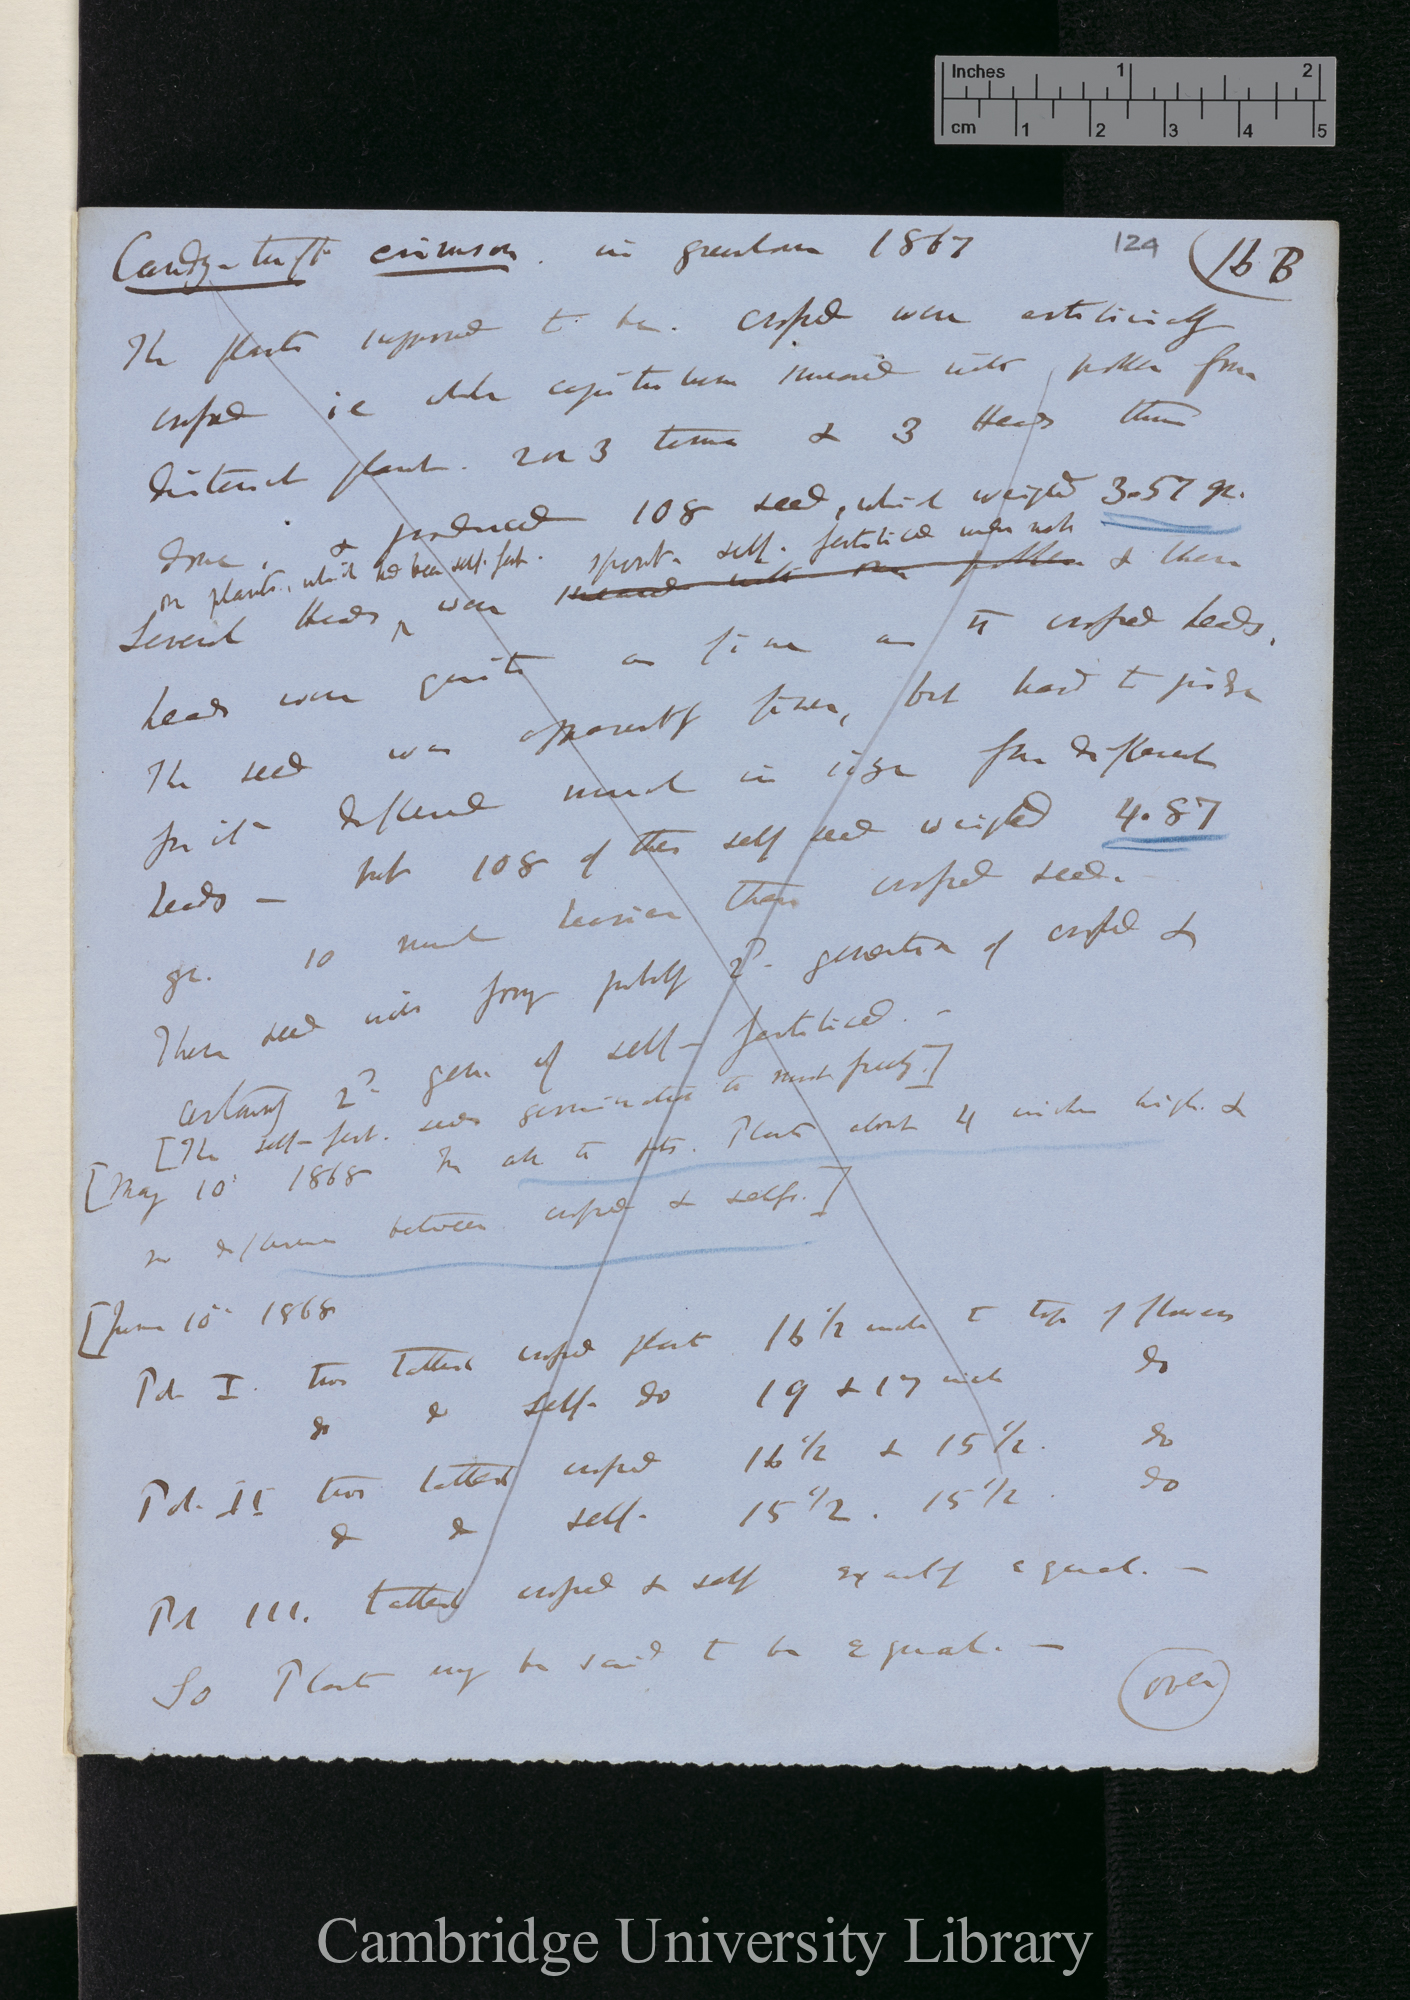 Inches 1 2
cm 1 2 3 4 5
Candy-tuft crimson. in greenhouse 1867 124 16 B
The plants supposed to be. crossed were artificially
crossed ie whole capitulum smeared with pollen from
distinct plant. 2 or 3 times & 3 Heads thus
done, & produced 108 seed, which weighed 3.57 gr.
on plants, which had been self-fert. spont. self-fertilised under net
Several Heads, were smeared with own pollen & these
heads were quite as fine as the crossed heads.
The seed was apparently finer, but hard to judge
for it differed much in size from different
heads — but 108 of these self seed weighed 4.87
gr. so much heavier than crossed seed. —
These seed will form probably 2d. generation of crossed &
certainly 2d. gen. of self-fertilised. —
[The self-fert. seeds germinated the most freely.]
[May 10th 1868 In all the pots. Plants about 4 inches high. &
no difference between crossed & selfs.]
[June 10th 1868
Pot I. two tallest crossed plants 16 1/2 inches to top of flowers
do do self- do 19 & 17 inch do
Pot II two tallest crossed 16 1/2 & 15 1/2. do
do do self- 15 1/2. 15 1/2. do
Pot III. tallest crossed & self exactly equal. —
So Plants may be said to be equal. —
(over)
Cambridge University Library